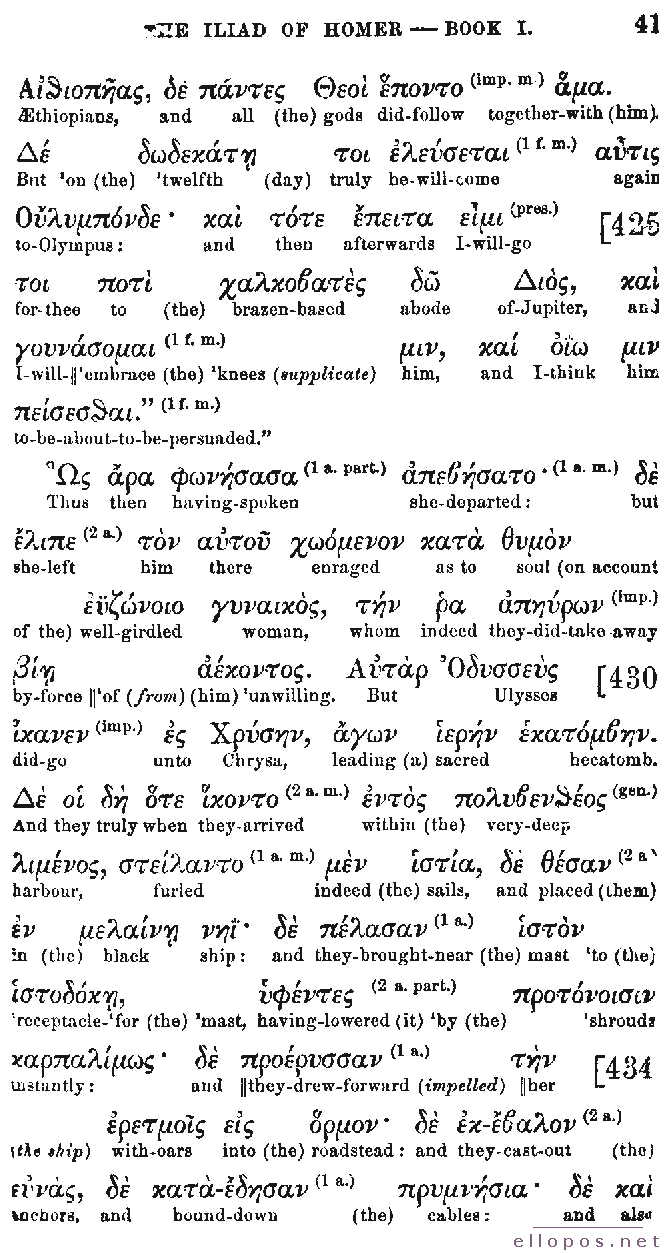 THE ILIAD OF HOMER — BOOK I. 41
Αἰϑιοπῆας, δὲ πάντες Θεοὶ ἕποντο (imp. m.) ἅμα.
Æthiopians, and all (the) gods did-follow together-with (him).
Δέ δωδεκάτῃ τοι ἐλεύσεται (1 f. m.) αὖτις
But 'on (the) 'twelfth (day) truly he-will-come again
Οὔλυμπόνδε· καὶ τότε ἔπειτα εἶμι (pres.) [425
to-Olympus: and then afterwards I-will-go
τοι ποτὶ χαλκοϐατὲς δῶ Διὸς, καὶ
for-thee to (the) brazen-based abode of-Jupiter, and
γουνάσομαι (1 f. m.) μιν, καί ὀΐω μιν
I-will-‖'embrace (the) 'knees (supplicate) him, and I-think him
πείσεσϑαι.” (1 f. m.)
to-be-about-to-be-persuaded.”
Ὣς ἄρα φωνήσασα (1 a. part.) ἀπεϐήσατο· (1 a. m.) δὲ
Thus then having-spoken she-departed: but
ἔλιπε (2 a.) τὸν αὐτοῦ χωόμενον κατὰ θυμὸν
she-left him there enraged as to soul (on account
ἐϋζώνοιο γυναικὸς, τήν ῥα ἀπηύρων (imp.)
of the) well-girdled woman, whom indeed they-did-take-away
βίῃ ἀέκοντος. Αὐτὰρ Ὀδυσσεὺς [430
by-force ‖'of (from) (him) 'unwilling. But Ulysses
ἵκανεν (imp.) ἐς Χρύσην, ἄγων ἱερήν ἑκατόμϐην.
did-go unto Chrysa, leading (a) sacred hecatomb.
Δὲ οἱ δὴ ὅτε ἵκοντο (2 a. m.) ἐντὸς πολυϐενϑέος (gen.)
And they truly when they-arrived within (the) very-deep
λιμένος, στείλαντο (1 a. m.) μὲν ἱστία, δὲ θέσαν (2 a
harbour, furled indeed (the) sails, and placed (them)
ἐν μελαίνῃ νηῒ· δὲ πέλασαν (1 a.) ἱστὸν
in (the) black ship: and they-brought-near (the) mast 'to (the)
ἱστοδόκῃ, ὑφέντες (2 a. part.) προτόνοισιν
'receptacle-'for (the) 'mast, having-lowered (it) 'by (the) 'shrouds
καρπαλίμως· δὲ προέρυσσαν (1 a.) τὴν [434
instantly: and ‖they-drew-forward (impelled) ‖her
ἐρετμοῖς εἰς ὅρμον· δὲ ἐκ-ἔϐαλον (2 a.)
(the ship) with-oars into (the) roadstead: and they-cast-out (the)
εὐνάς, δὲ κατὰ-ἔδησαν (1 a.) πρυμνήσια· δὲ καὶ
anchors, and bound-down (the) cables: and also
ellopos.net